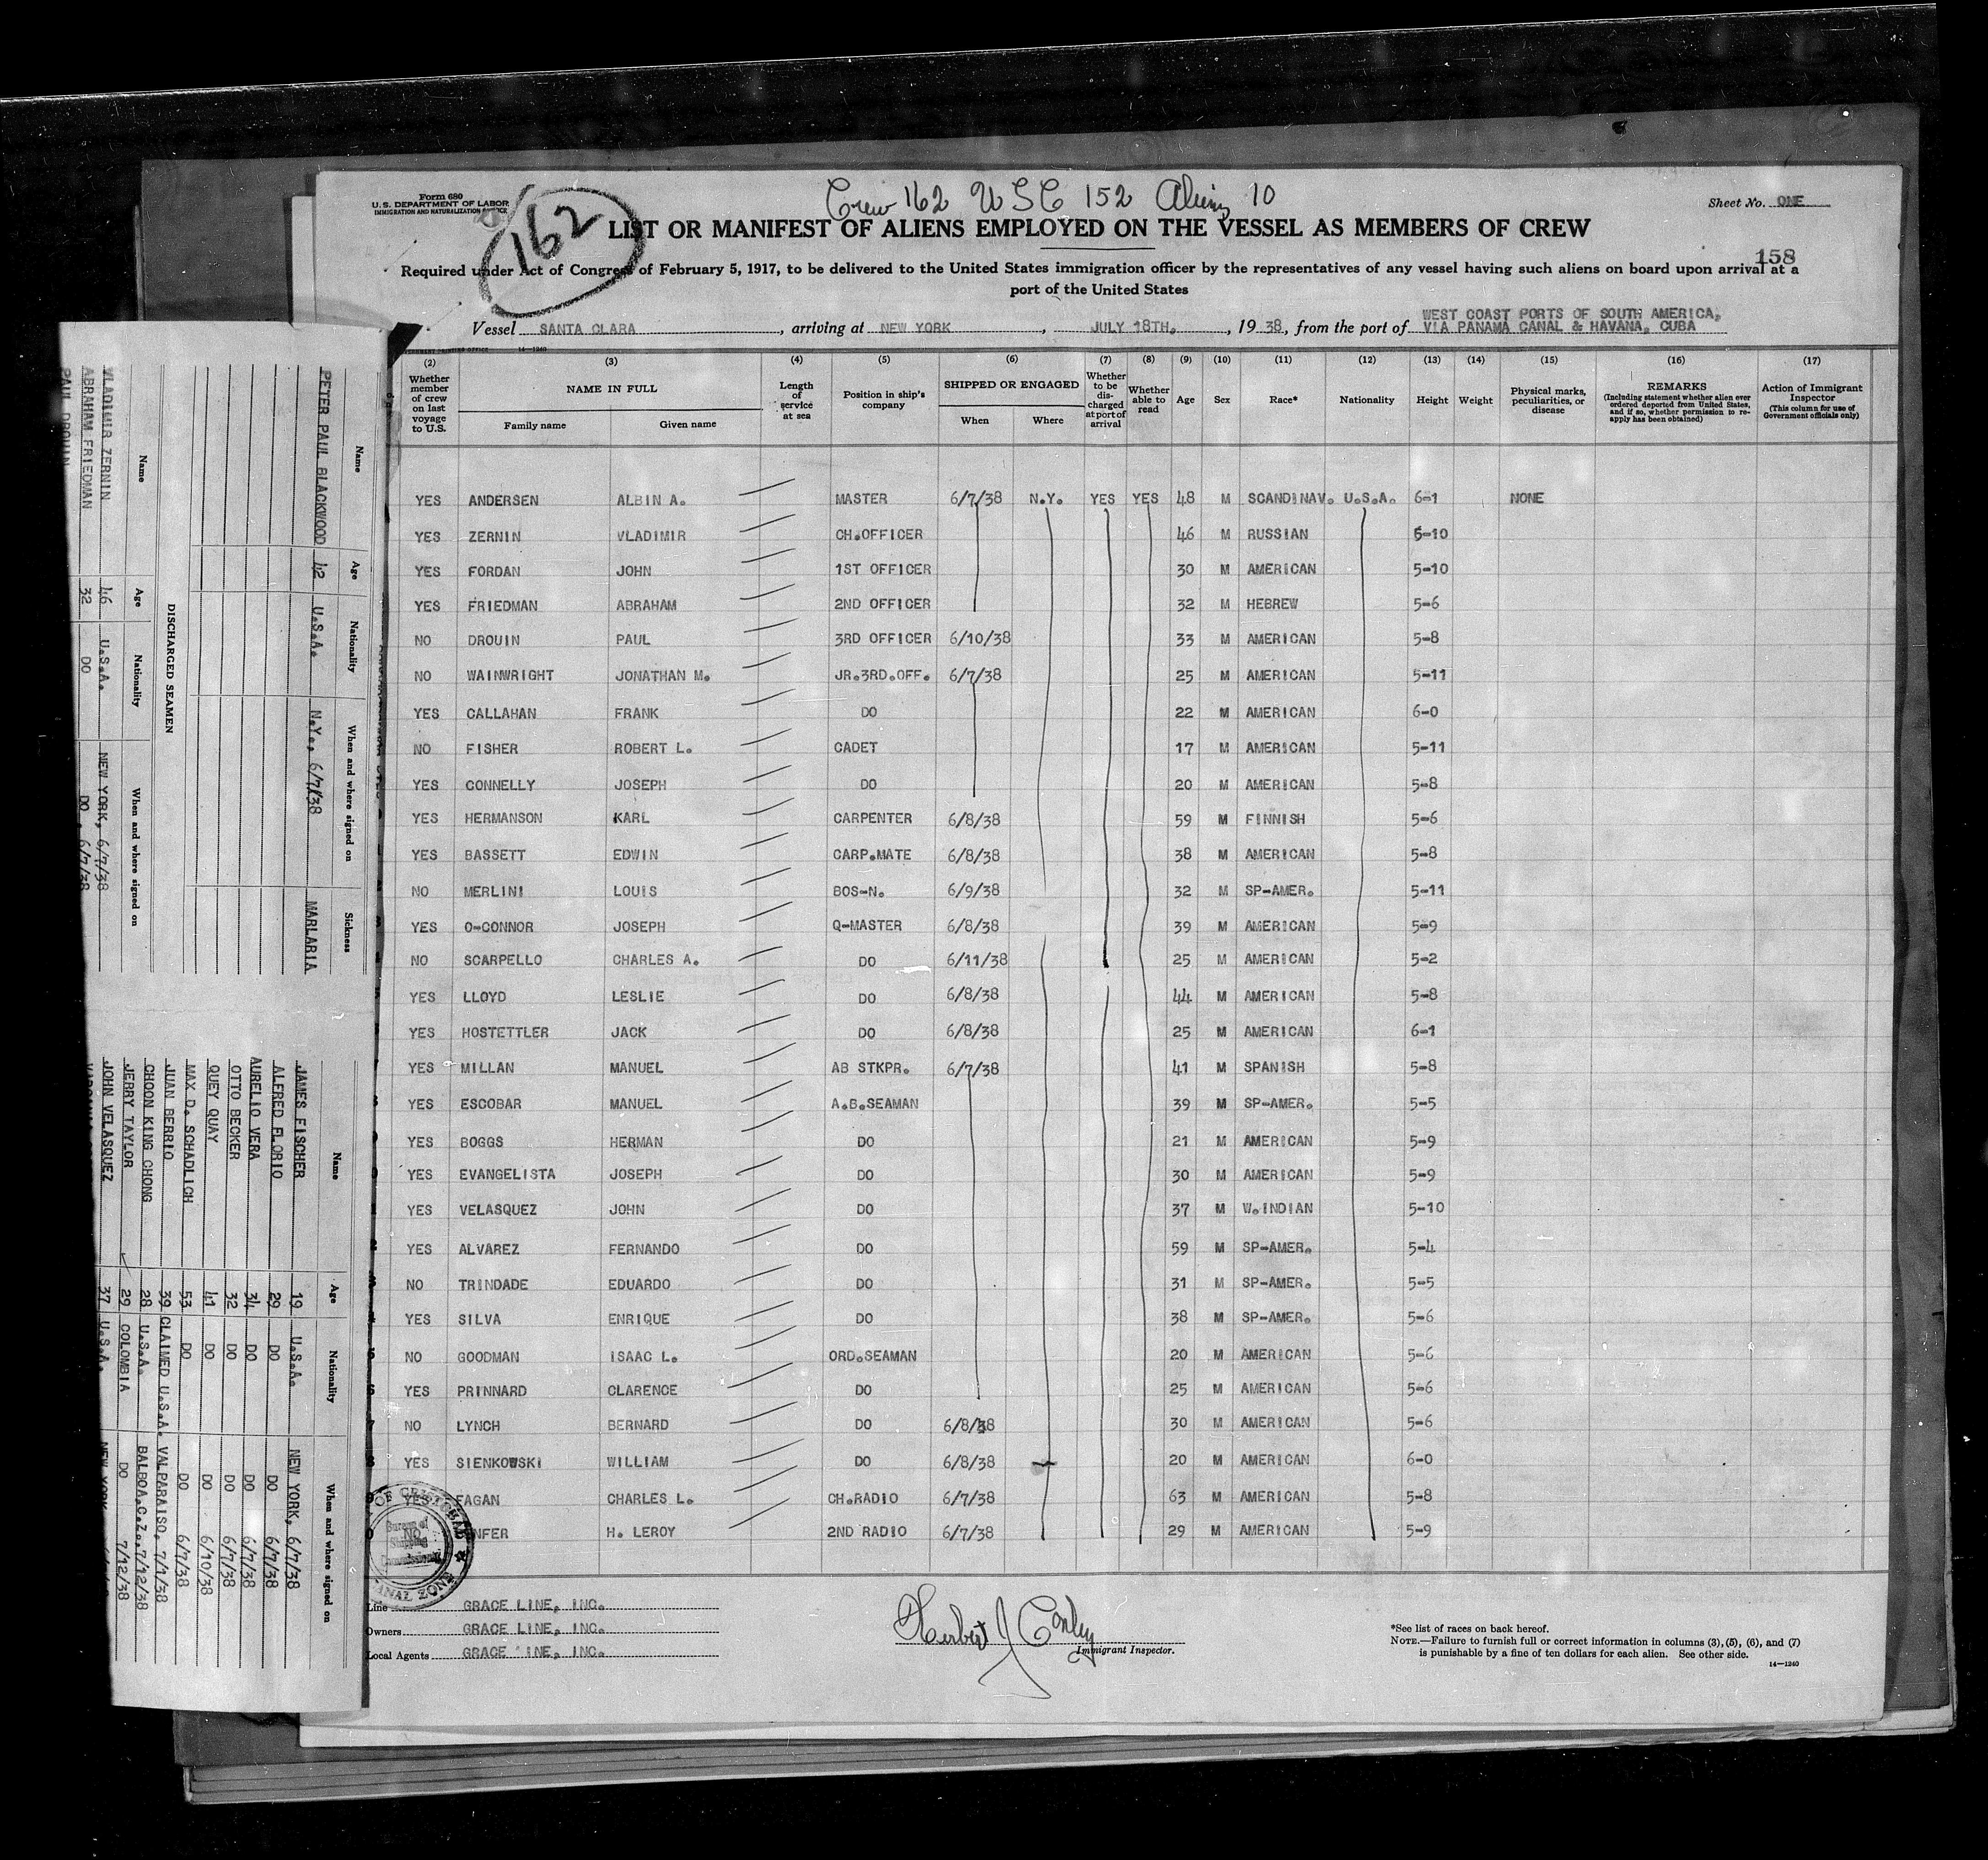 Form 680
U.S. DEPARTMENT OF LABOR
IMMIGRATION AND NATURALIZATION SERVICE
162
Crew 162 USC 152 Aliens 10
Sheet No. ONE
LIST OR MANIFEST OF ALIENS EMPLOYED ON THE VESSEL AS MEMBERS OF CREW
158
Required under Act of Congress of February 5, 1917, to be delivered to the United States immigration officer by the representatives of any vessel having such aliens on board upon arrival at a
port of the United States
Vessel SANTA CLARA, arriving at NEW YORK, JULY 18TH., 1938, from the port of WEST COAST PORTS OF SOUTH AMERICA,
VIA PANAMA CANAL & HAVANA, CUBA
14—1240
(2) (3) (4) (5) (6) (7) (8) (9) (10) (11) (12) (13) (14) (15) (16) (17)
Whether member of crew on last voyage to U.S.
NAME IN FULL
Family name
Given name
Length of service at sea
Position in ship's company
SHIPPED OR ENGAGED
When
Where
Whether to be discharged at port of arrival
Whether able to read
Age
Sex
Race*
Nationality
Height
Weight
Physical marks, peculiarities, or disease
REMARKS
(Including statement whether alien ever ordered deported from United States, and if so, whether permission to reapply has been obtained)
Action of Immigrant Inspector
(This column for use of Government officials only)
YES ANDERSEN ALBIN A. MASTER 6/7/38 N.Y. YES YES 48 M SCANDINAV. U.S.A. 6-1 NONE
YES ZERNIN VLADIMIR CH.OFFICER 46 M RUSSIAN 5-10
YES FORDAN JOHN 1ST OFFICER 30 M AMERICAN 5-10
YES FRIEDMAN ABRAHAM 2ND OFFICER 32 M HEBREW 5-6
NO DROUIN PAUL 3RD OFFICER 6/10/38 33 M AMERICAN 5-8
NO WAINWRIGHT JONATHAN M. JR.3RD.OFF. 6/7/38 25 M AMERICAN 5-11
YES CALLAHAN FRANK DO 22 M AMERICAN 6-0
NO FISHER ROBERT L. CADET 17 M AMERICAN 5-11
YES CONNELLY JOSEPH DO 20 M AMERICAN 5-8
YES HERMANSON KARL CARPENTER 6/8/38 59 M FINNISH 5-6
YES BASSETT EDWIN CARP.MATE 6/8/38 38 M AMERICAN 5-8
NO MERLINI LOUIS BOS-N. 6/9/38 32 M SP-AMER. 5-11
YES O-CONNOR JOSEPH Q-MASTER 6/8/38 39 M AMERICAN 5-9
NO SCARPELLO CHARLES A. DO 6/11/38 25 M AMERICAN 5-2
YES LLOYD LESLIE DO 6/8/38 44 M AMERICAN 5-8
YES HOSTETTLER JACK DO 6/8/38 25 M AMERICAN 6-1
YES MILLAN MANUEL AB STKPR. 6/7/38 41 M SPANISH 5-8
YES ESCOBAR MANUEL A.B.SEAMAN 39 M SP-AMER. 5-5
YES BOGGS HERMAN DO 21 M AMERICAN 5-9
YES EVANGELISTA JOSEPH DO 30 M AMERICAN 5-9
YES VELASQUEZ JOHN DO 37 M W.INDIAN 5-10
YES ALVAREZ FERNANDO DO 59 M SP-AMER. 5-4
NO TRINDADE EDUARDO DO 31 M SP-AMER. 5-5
YES SILVA ENRIQUE DO 38 M SP-AMER. 5-6
NO GOODMAN ISAAC L. ORD.SEAMAN 20 M AMERICAN 5-6
YES PRINNARD CLARENCE DO 25 M AMERICAN 5-6
NO LYNCH BERNARD DO 6/8/38 30 M AMERICAN 5-6
YES SIENKOWSKI WILLIAM DO 6/8/38 20 M AMERICAN 6-0
YES FAGAN CHARLES L. CH.RADIO 6/7/38 63 M AMERICAN 5-8
NO H. LEROY 2ND RADIO 6/7/38 29 M AMERICAN 5-9
Bureau of Shipping Commissioner
CANAL ZONE
Line GRACE LINE, INC.
Owners GRACE LINE, INC.
Local Agents GRACE LINE, INC.
Herbert J Conley
Immigrant Inspector.
*See list of races on back hereof.
NOTE.—Failure to furnish full or correct information in columns (3), (5), (6), and (7)
is punishable by a fine of ten dollars for each alien. See other side.
14—1240
Name Age Nationality When and where signed on Sickness
PETER PAUL BLACKWOOD 42 U.S.A. N.Y., 6/7/38 MARLARIA
DISCHARGED SEAMEN
Name Age Nationality When and where signed on
VLADIMIR ZERNIN 46 U.S.A. NEW YORK, 6/7/38
ABRAHAM FRIEDMAN 32 DO DO, 6/7/38
PAUL DROUIN
Name Age Nationality When and where signed on
JAMES FISCHER 19 U.S.A. NEW YORK, 6/7/38
ALFRED FLORIO 29 DO DO 6/7/38
AURELIO VERA 34 DO DO 6/7/38
OTTO BECKER 32 DO DO 6/7/38
QUEY QUAY 41 DO DO 6/10/38
MAX D. SCHADLICH 53 DO DO 6/7/38
JUAN BERRIO 39 CLAIMED U.S.A. VALPARAISO, 7/1/38
CHOON KING CHONG 28 U.S.A. BALBOA,C.Z., 7/12/38
JERRY TAYLOR 29 COLOMBIA DO 7/12/38
JOHN VELASQUEZ 37 U.S.A. NEW YORK